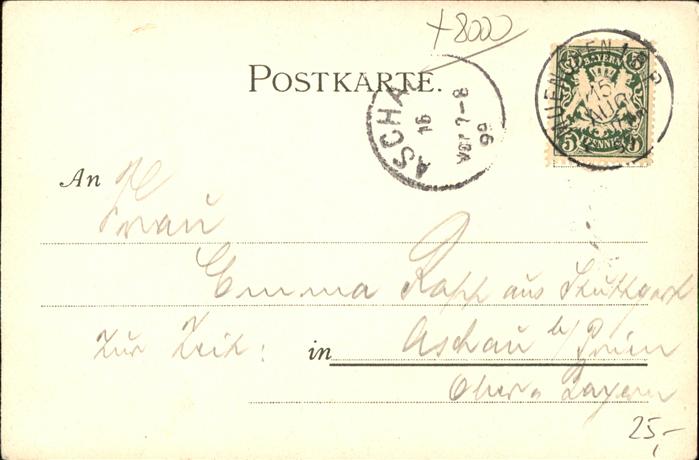 +8000
POSTKARTE.
MUENCHEN 1 B.P.
15
AUG
BAYERN
5 5
PFENNIG
ASCHA
16
8-7 VOR
99
An
Frau
Emma Rapp aus Stuttgart
Zur Zeit: in Aschau b/Prien
Ober-Bayern
25,-